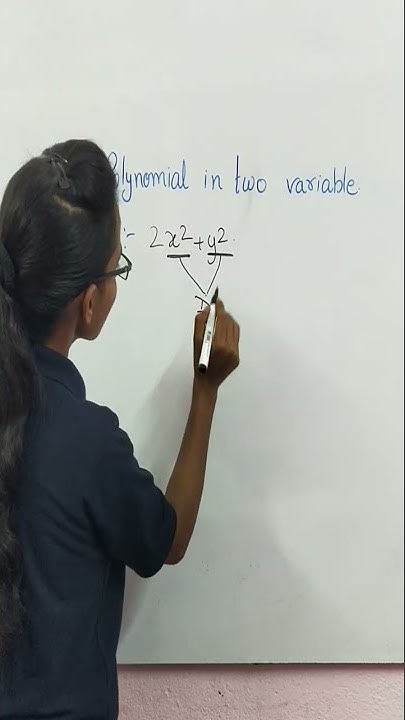 Polynomial in two variable.
:- 2x²+y².